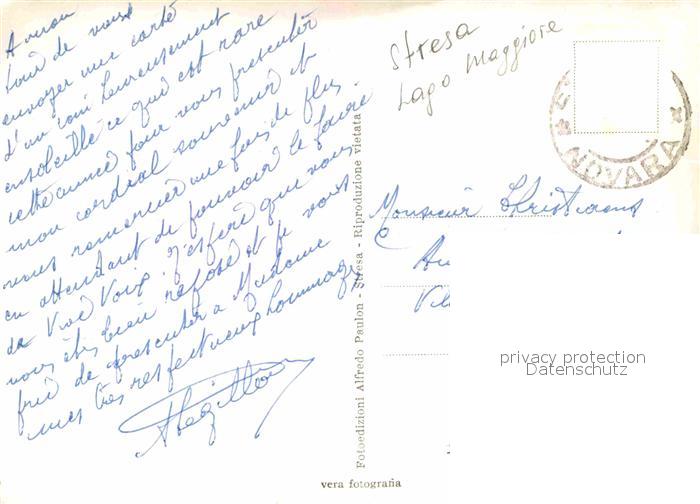 A mon
tour de vous
envoyer une carte
d'un coin heureusement
ensoleillé ce qui est rare
cette année pour vous presenter
mon cordial souvenir et
vous remercier une fois de plus
en attendant de pouvoir le faire
de Vive Voix. J'espère que vous
vous êtes bien reposé et je vous
prie de presenter à Madame
mes très respectueux hommages
Stresa
Lago Maggiore
NOVARA
Monsieur Christiaens
Fotoedizioni Alfredo Paulon - Stresa - Riproduzione vietata
vera fotografia
privacy protection
Datenschutz